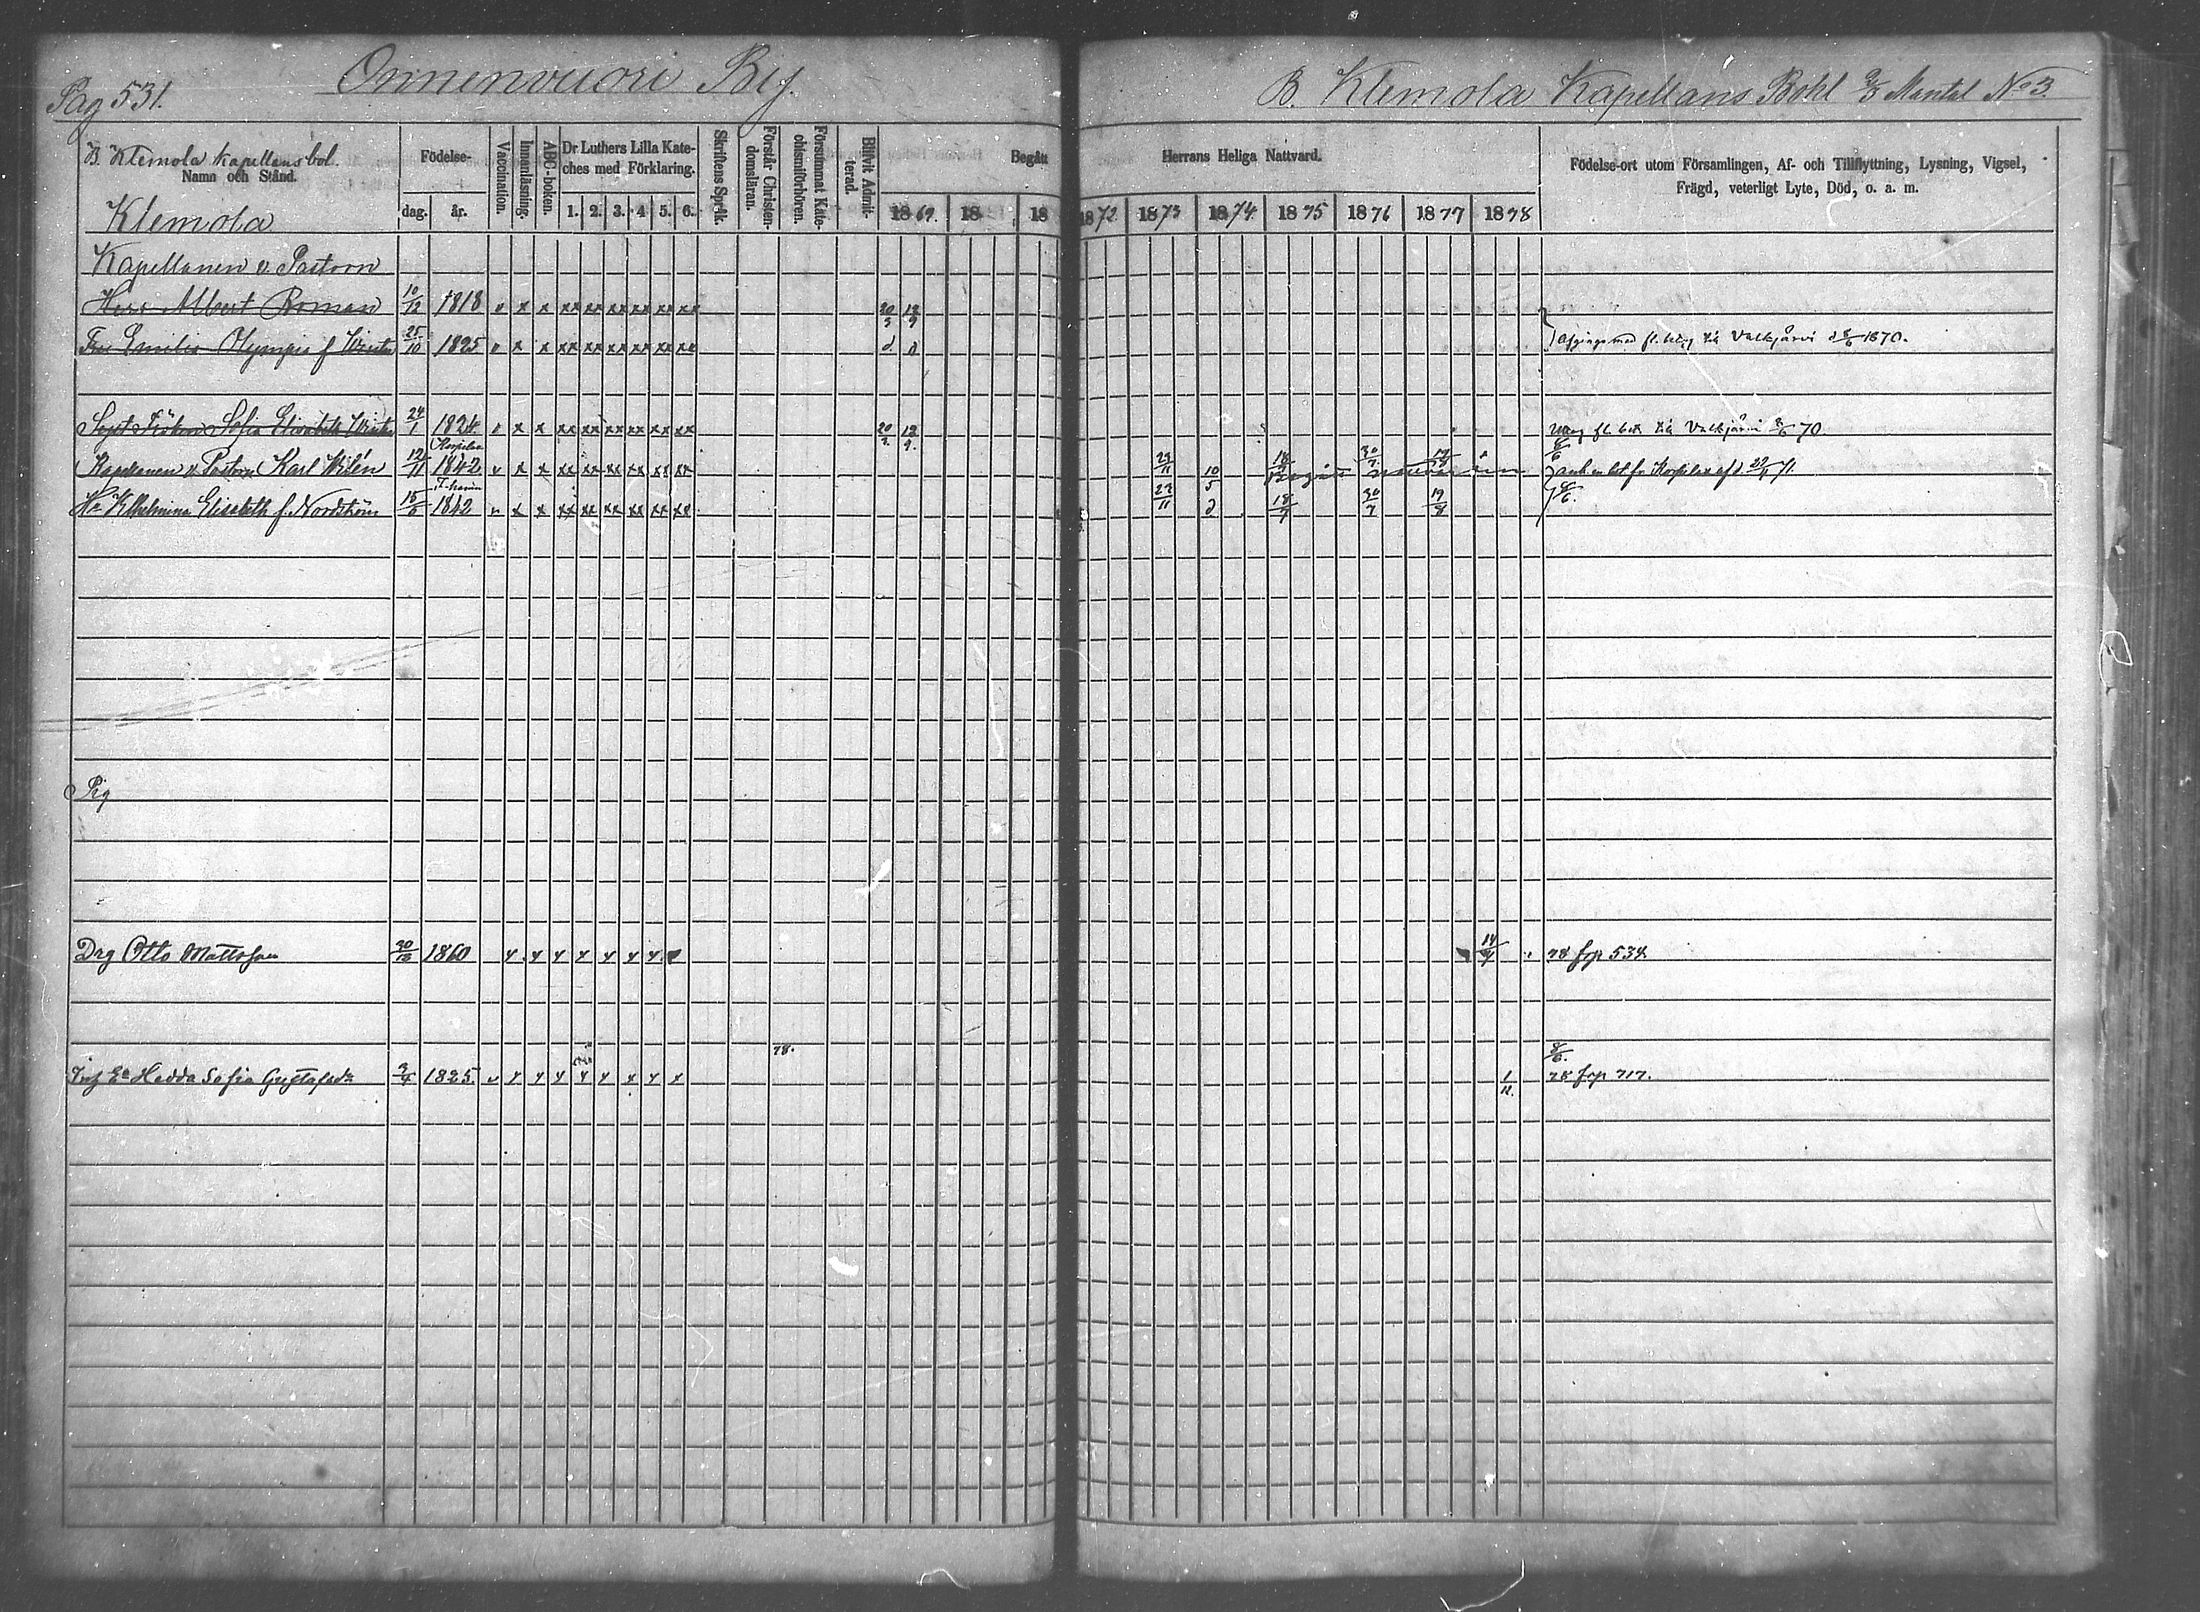 Pag 531.
Onnenvuori By.
B. Klemola Kapellans Bohl 2/3 Mantal No 3.
B. Klemola Kapellansbol.
Namn och Stånd.
Klemola
Födelse-
dag. år.
Vaccination.
Innanläsning.
ABC-boken.
Dr Luthers Lilla Kate-
ches med Förklaring.
1. 2. 3. 4 5. 6.
Skriftens Språk.
Förstår Christen-
domsläran.
Försummat Kate-
chismiförhören.
Blifvit Admit-
terad.
Begått Herrans Heliga Nattvard.
1869. 18 18 1872. 1873 1874 1875 1876 1877 1878
Födelse-ort utom Församlingen, Af- och Tillflyttning, Lysning, Vigsel,
Frägd, veterligt Lyte, Död, o. a. m.
Kapellanen v. Pastorn
Herr Albert Roman 10/12 1818 v x x xx xx xx xx xx xx 20/3 12/9
Fru Emilia Olympia f. 25/10 1825 v x x xx xx xx xx xx xx d d afgingo med fl. betyg till Valkjärvi 1870.
Fröken Sofia Elisabeth 24/1 1824 v x x xx xx xx xx xx xx 20 12/9. fl. bet till Valkjärvi 70.
Kapellanen v Pastorn Karl Wilén 12/11 1842 v x x xx xx xx xx xx xx 23/11 10/5 18 30/7 19
Wilhelmina Elisabeth f. Nordström 15/6 1842 v x x xx xx xx xx xx xx 23/11 d 18/7 30/7 19/8 8/6.
Pig
Drg Otto Mattsson 30/10 1860 14 78 frp 534.
78. 8/6.
Hedda Sofia Gustafsdr 1825. 1/11. 78 frp 717.